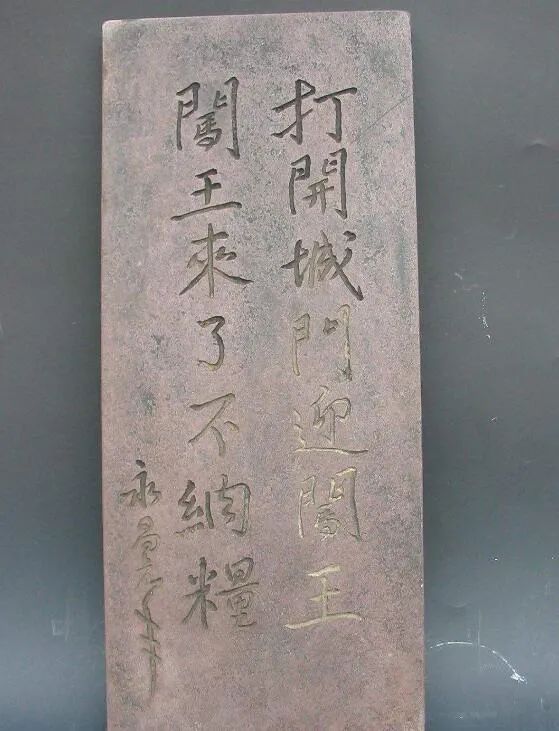 打開城門迎闖王
闖王來了不納糧
永昌元年